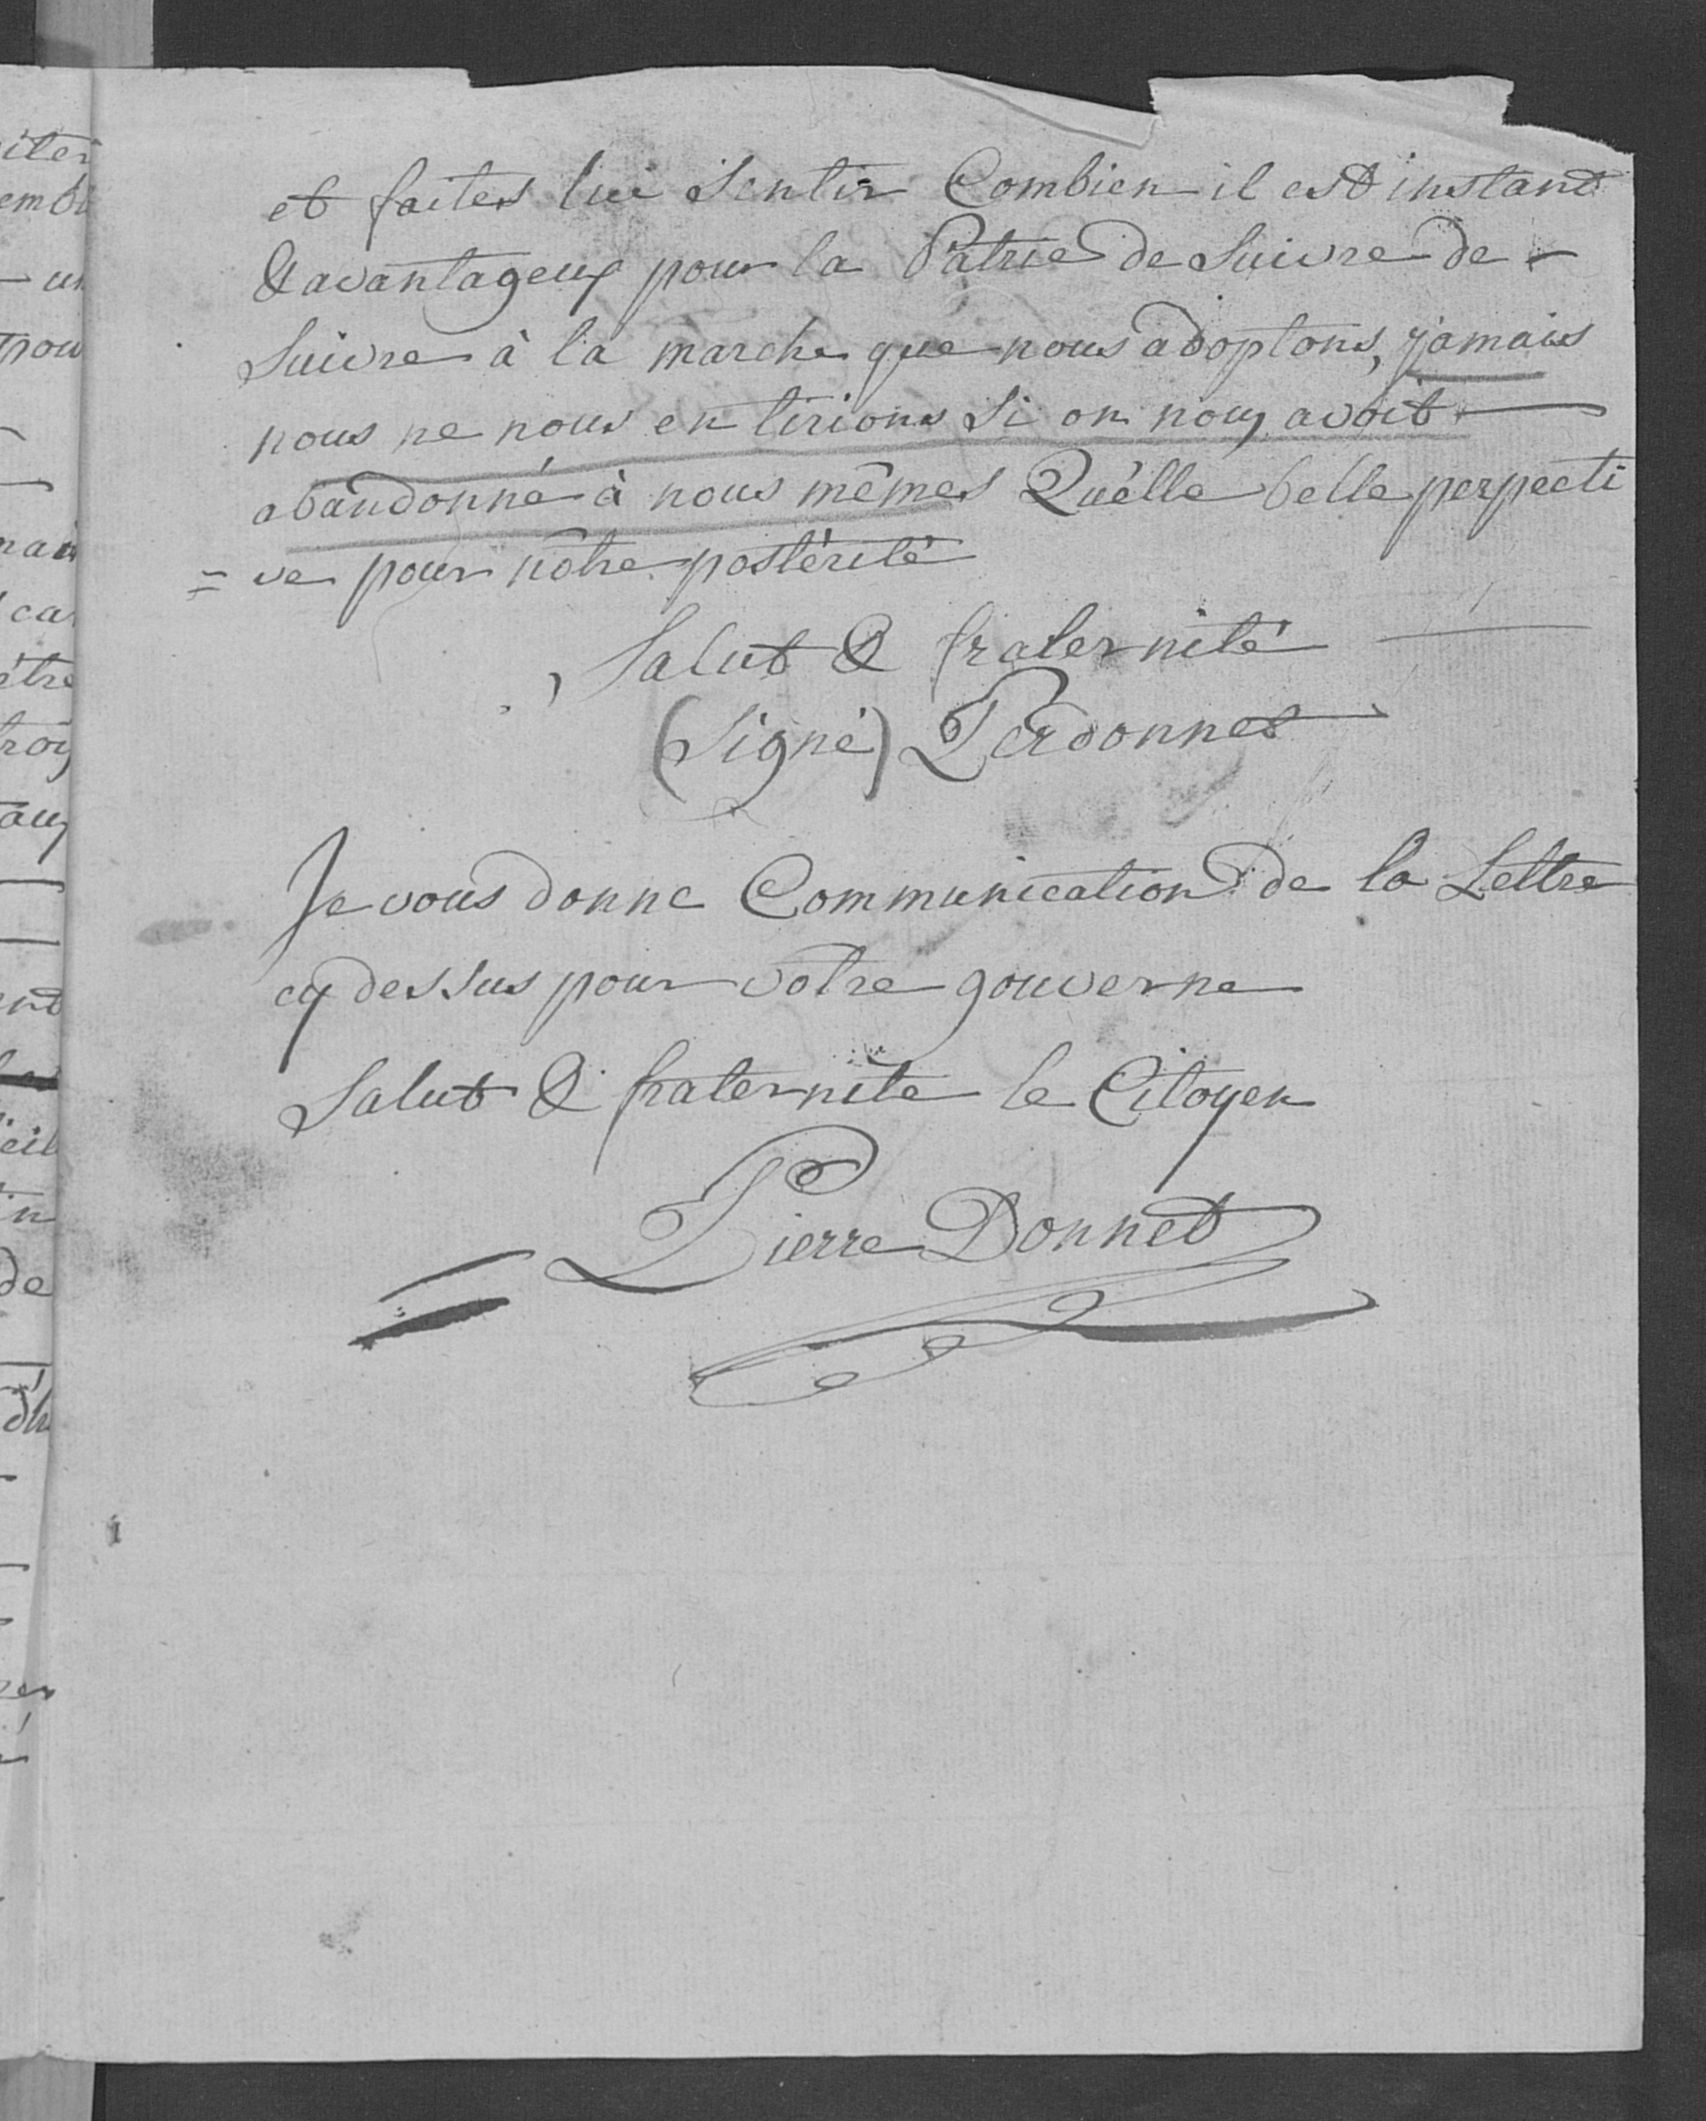 et faites lui sentir Combien il est instant
& avantageux pour la Patrie de suivre de
suivre à la marche que nous adoptons, jamais
nous ne nous en tirions si on nous avoit
abandonné à nous mêmes Quélle belle perpecti
= ve pour nôtre postérité
Salut & fraternité
(Signé) Perdonnet
Je vous donne Communication de la Lettre
cy dessus pour votre gouverne
Salut & fraternite le Citoyen
Pierre Donnet